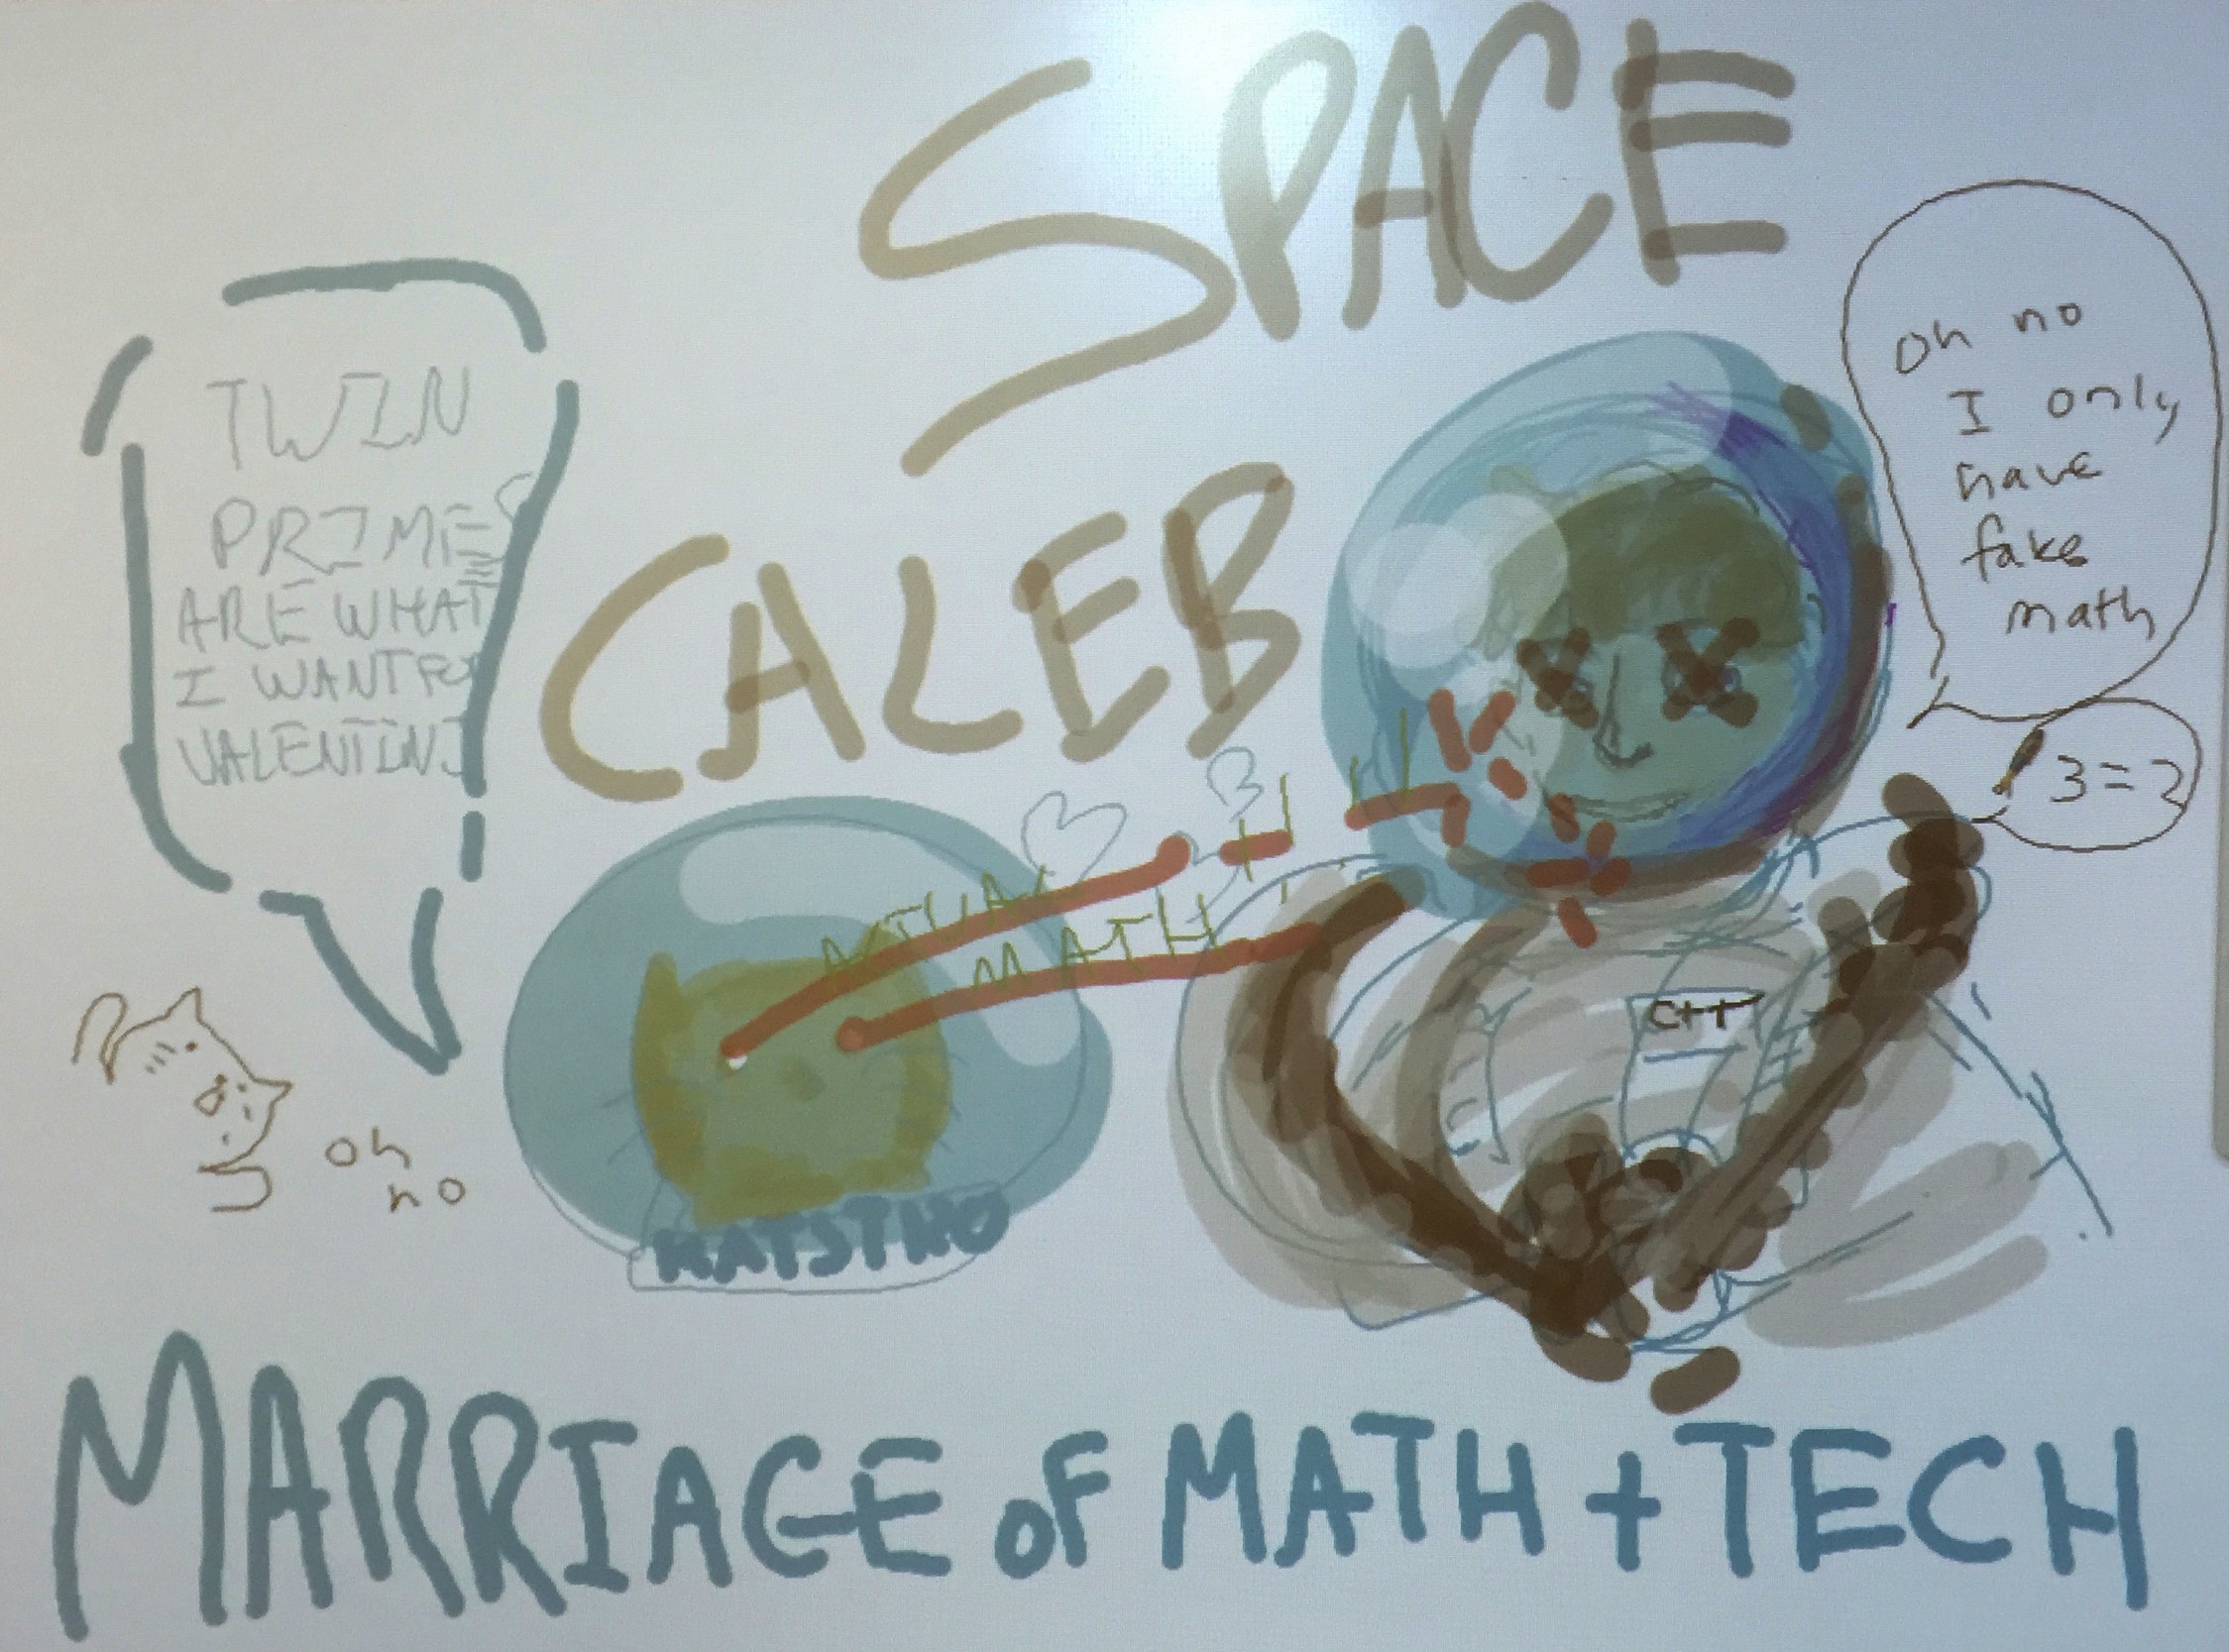 SPACE
CALEB
TWIN
PRIMES
ARE WHAT
I WANT FOR
VALENTINS
oh no
I only
have
fake
math
3=2
MATH
C++
oh
no
KATSTRO
MARRIAGE OF MATH + TECH